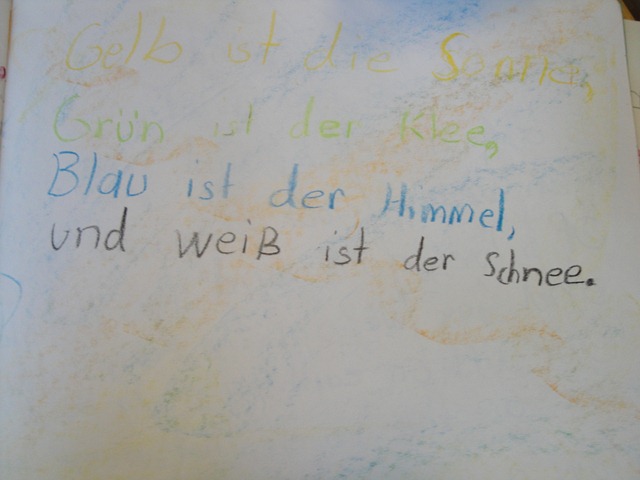 Gelb ist die Sonne,
Grün ist der Klee,
Blau ist der Himmel,
und weiß ist der Schnee.